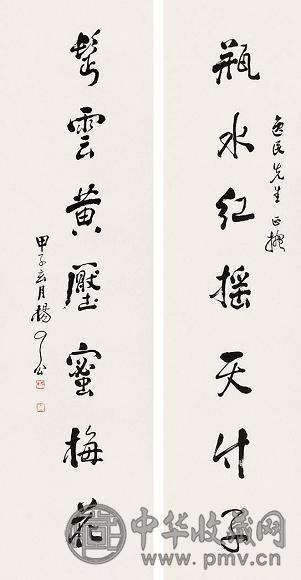 逸民先生正
瓶水紅摇天竹子
鬢雲黄壓蜜梅花
甲子玄月楊了公
中华收藏网
www.pmv.cn